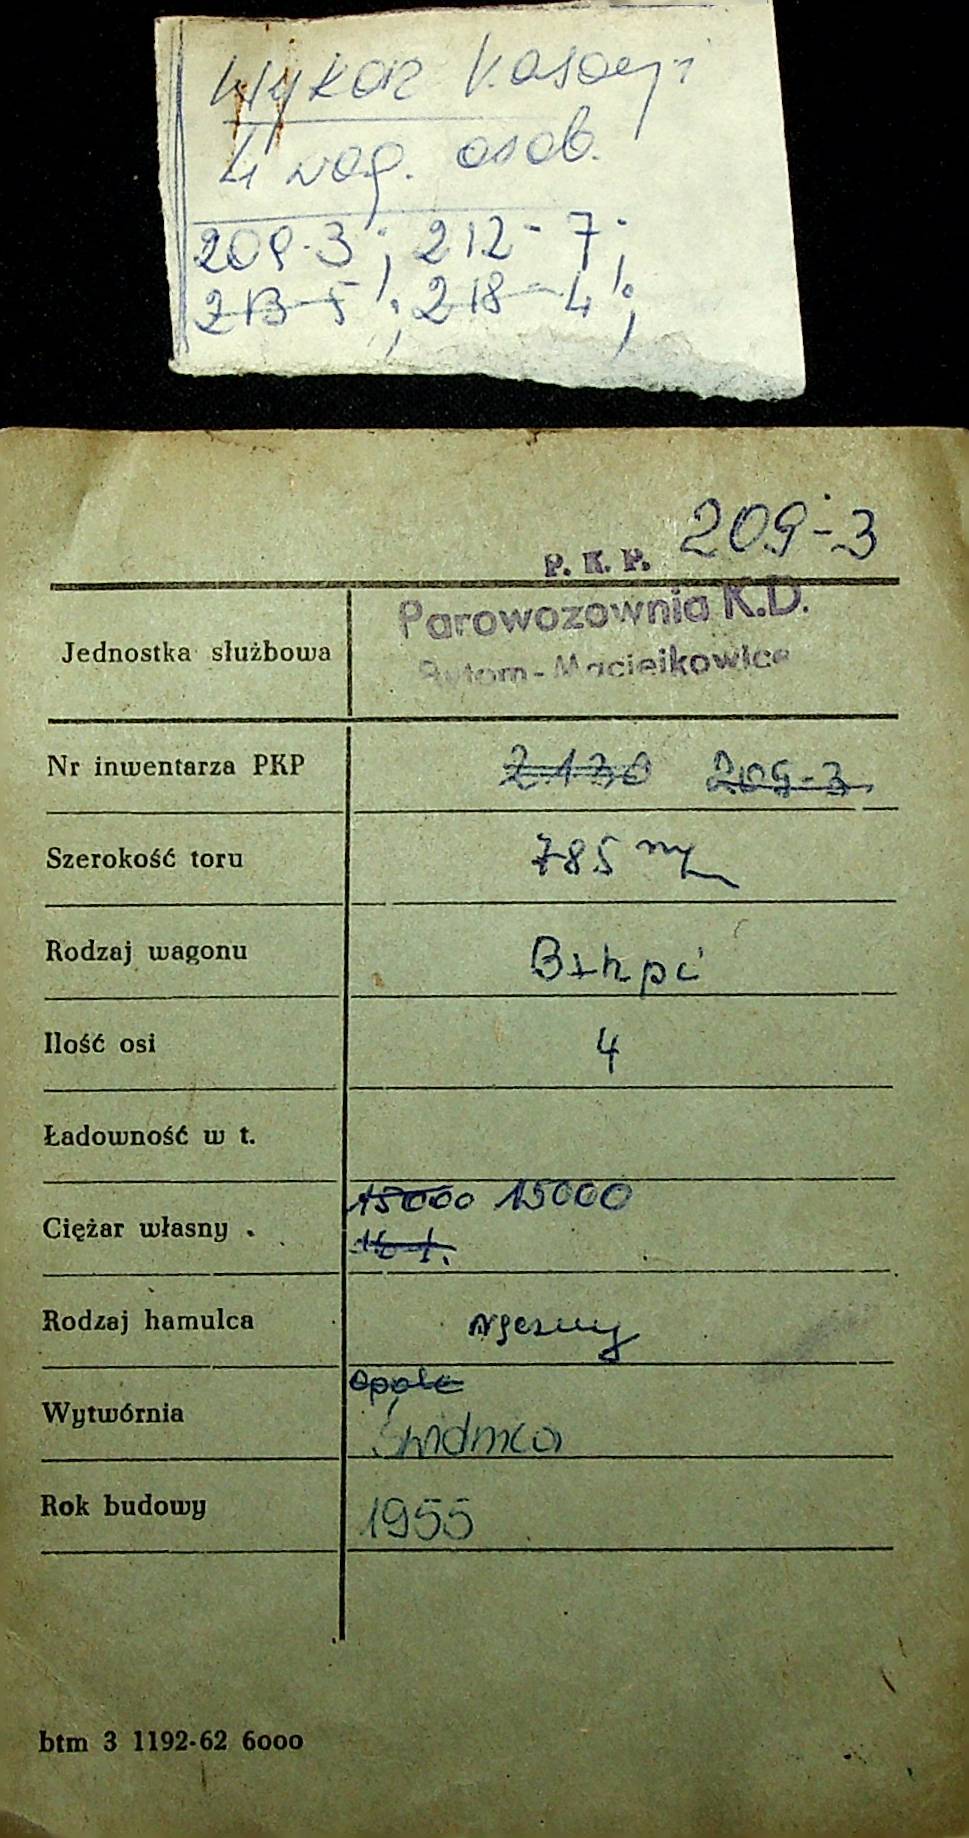 Wykaz kasacji
4 wag. osob.
209-3; 212-7;
213-5; 218-4;
209-3
P. K. P.
Jednostka służbowa Parowozownia K.D.
Bytom-Maciejkowice
Nr inwentarza PKP 2130 209-3
Szerokość toru 785 m/m
Rodzaj wagonu Bxhpi
Ilość osi 4
Ładowność w t.
Ciężar własny . 15000 15000
16 t.
Rodzaj hamulca ręczny
Wytwórnia Opole
Świdnica
Rok budowy 1955
btm 3 1192-62 6000